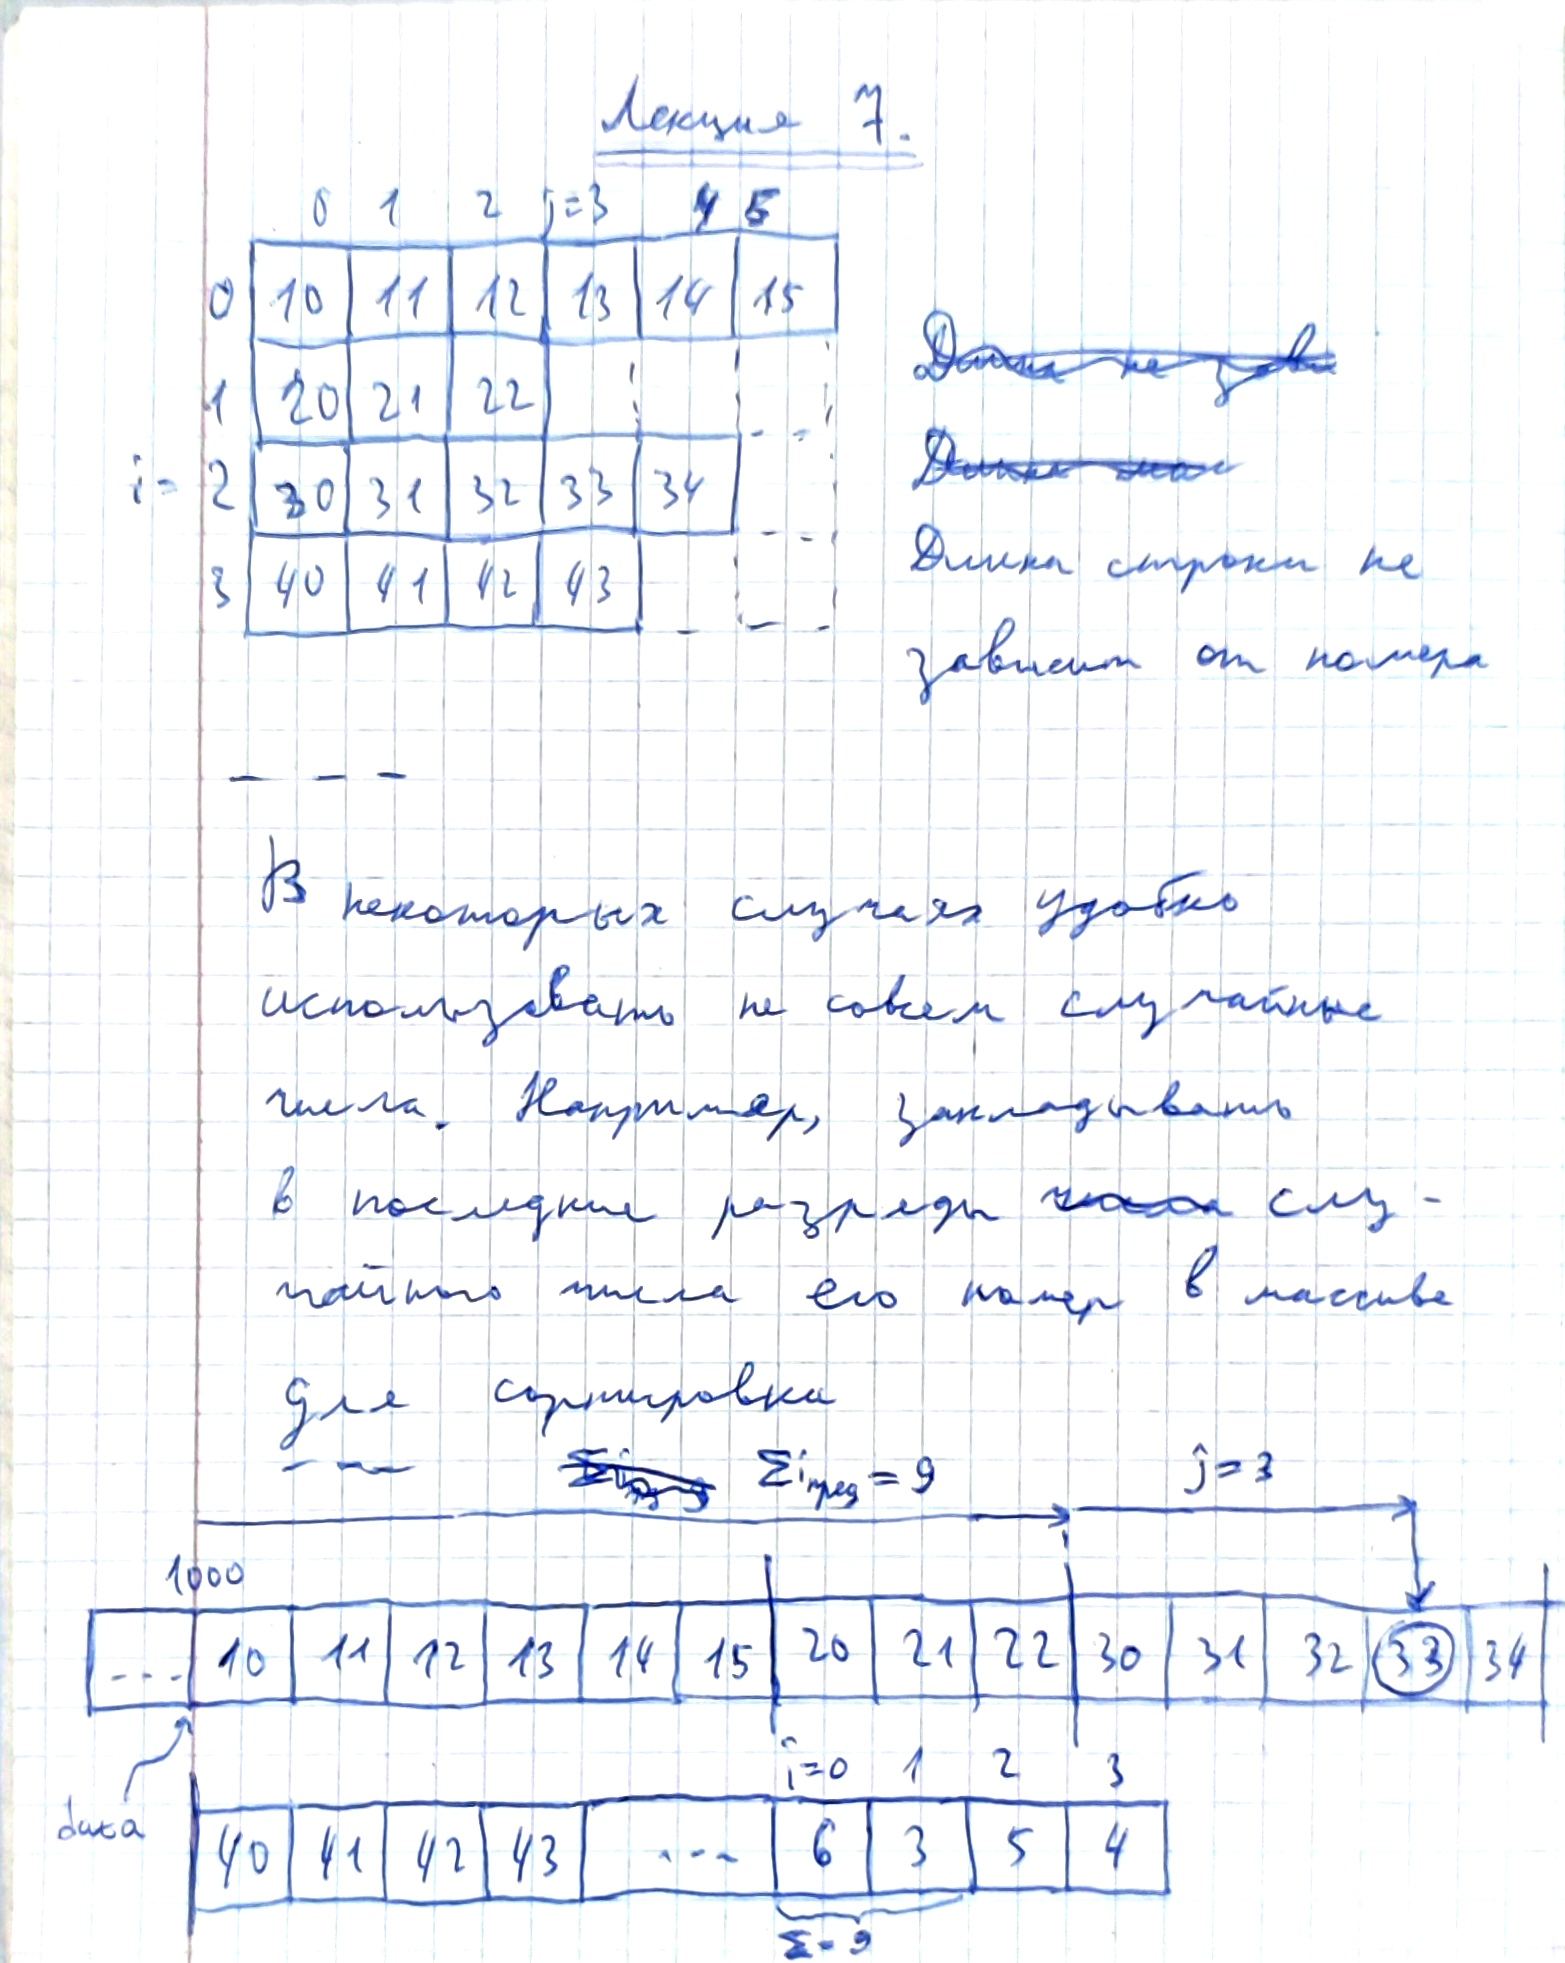 Лекция 7.
0 1 2 j=3 4 5
0 10 11 12 13 14 15
1 20 21 22
i= 2 30 31 32 33 34
3 40 41 42 43
Длина строки не
зависит от номера
В некоторых случаях удобно
использовать не совсем случайные
числа. Например, закладывать
в последние разряды слу-
чайного числа его номер в массиве
для сортировки
Σiпред = 9 j=3
1000
... 10 11 12 13 14 15 20 21 22 30 31 32 33 34
i=0 1 2 3
база
40 41 42 43 ... 6 3 5 4
Σ=9